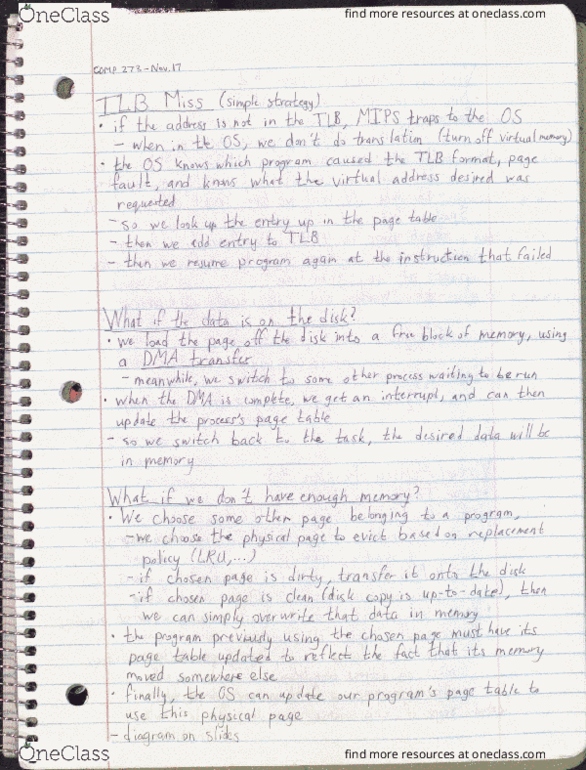 OneClass
find more resources at oneclass.com
COMP 273 - Nov. 17
TLB Miss (simple strategy)
• if the address is not in the TLB, MIPS traps to the OS
- when in the OS, we don't do translation (turn off virtual memory)
• the OS knows which program caused the TLB format, page
fault, and knows what the virtual address desired was
requested
- so we look up the entry up in the page table
- then we add entry to TLB
- then we resume program again at the instruction that failed
What if the data is on the disk?
• we load the page off the disk into a free block of memory, using
a DMA transfer
- meanwhile, we switch to some other process waiting to be run
• when the DMA is complete, we get an interrupt, and can then
update the process's page table
- so we switch back to the task, the desired data will be
in memory
What if we don't have enough memory?
• We choose some other page belonging to a program,
- we choose the physical page to evict based on replacement
policy (LRU,...)
- if chosen page is dirty, transfer it onto the disk
- if chosen page is clean (disk copy is up-to-date), then
we can simply overwrite that data in memory
• the program previously using the chosen page must have its
page table updated to reflect the fact that its memory
moved somewhere else
• finally, the OS can update our program's page table to
use this physical page
- diagram on slides
OneClass
find more resources at oneclass.com